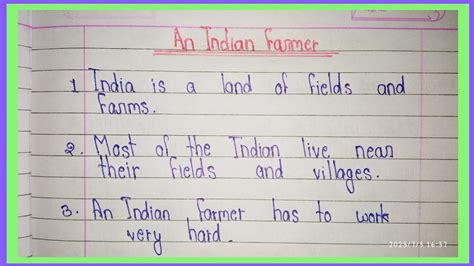 An Indian Farmer
1 India is a land of fields and
farms.
2. Most of the Indian live near
their fields and villages.
3. An Indian farmer has to work
very hard.
2023/7/5 16:37